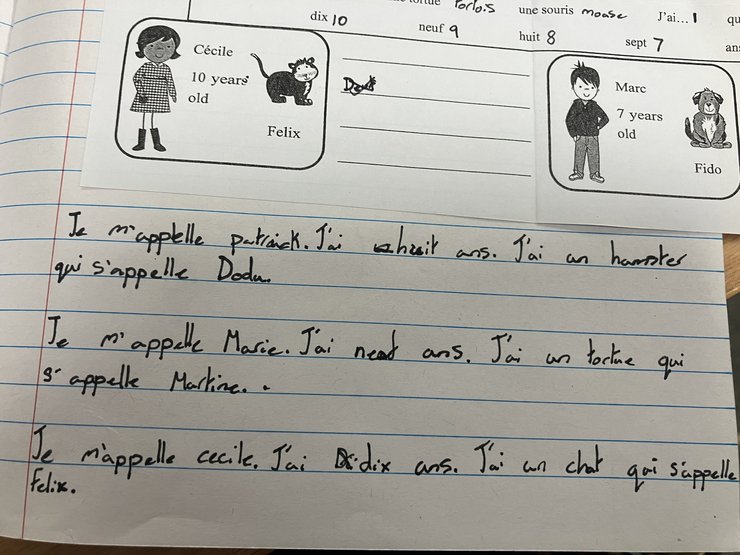 tortue
torlois
une souris moase
J'ai... 1
qu
dix 10
neuf 9
huit 8
sept 7
ans
Cécile
10 years
old
Felix
Marc
7 years
old
Fido
Je m'appelle patrick. J'ai huit ans. J'ai un hamster
qui s'appelle Dodu.
Je m'appelle Marie. J'ai neuf ans. J'ai un tortue qui
s'appelle Martine.
Je m'appelle cecile. J'ai dix ans. J'ai un chat qui s'appelle
Felix.